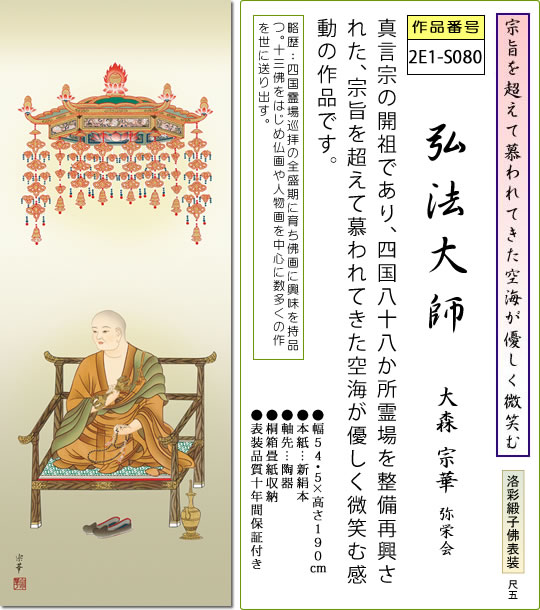 宗旨を超えて慕われてきた空海が優しく微笑む
洛彩緞子佛表装
尺五
作品番号
2E1-S080
弘法大師
大森 宗華 弥栄会
真言宗の開祖であり、四国八十八か所霊場を整備再興さ
れた、宗旨を超えて慕われてきた空海が優しく微笑む感
動の作品です。
略歴：四国霊場巡拝の全盛期に育ち佛画に興味を持
つ。十三佛をはじめ仏画や人物画を中心に数多くの作品
を世に送り出す。
●幅54・5×高さ190cm
●本紙…新絹本
●軸先…陶器
●桐箱畳紙収納
●表装品質十年間保証付き
宗華